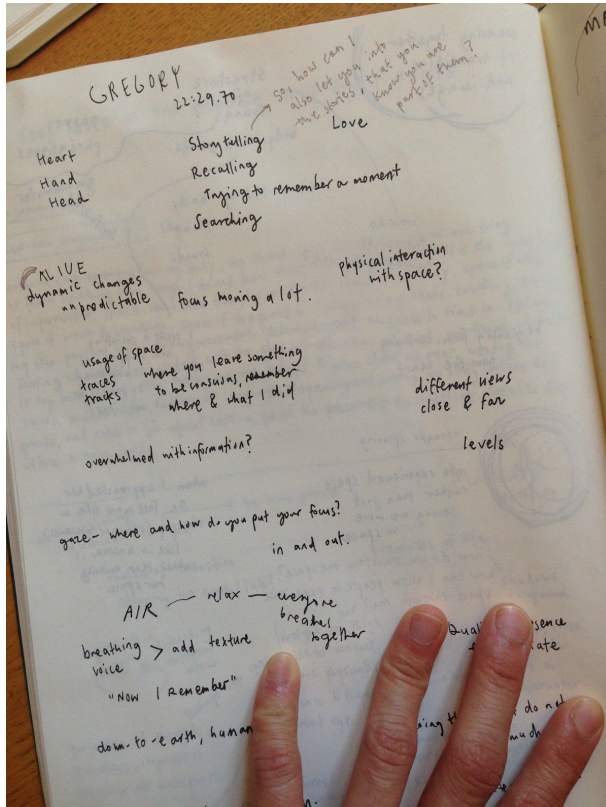 GREGORY
22:29.70
so, how can I
also let you into
the stories, that you
know you are
part of them?
Heart
Hand
Head
Storytelling
Recalling
Trying to remember a moment
Searching
Love
ALIVE
dynamic changes
unpredictable
focus moving a lot.
physical interaction
with space?
usage of space
traces
tracks
where you leave something
to be conscious, remember
where & what I did
different views
close & far
levels
overwhelmed with information?
gaze – where and how do you put your focus?
in and out.
AIR — relax — everyone
breathes
together
breathing
voice
> add texture
"Now I Remember"
down-to-earth, human
do not
much